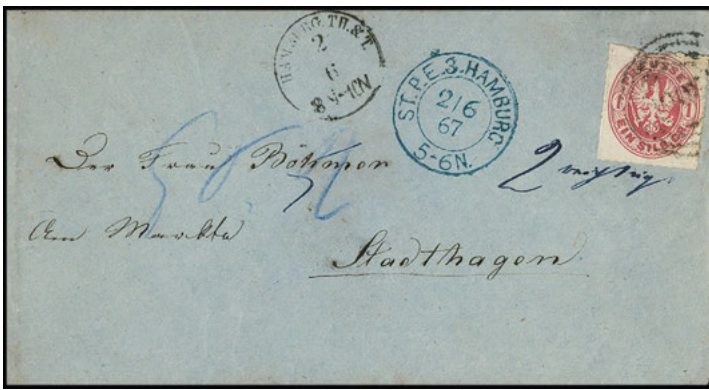 HAMBURG. TH.&T.
2
6
8 9-10N
ST.P.E.3.HAMBURG
2/6
67
5-6N.
PREUSSEN
1 1
EIN SILBER
Der Frau Böhmer
Am Markte
Stadthagen.
2